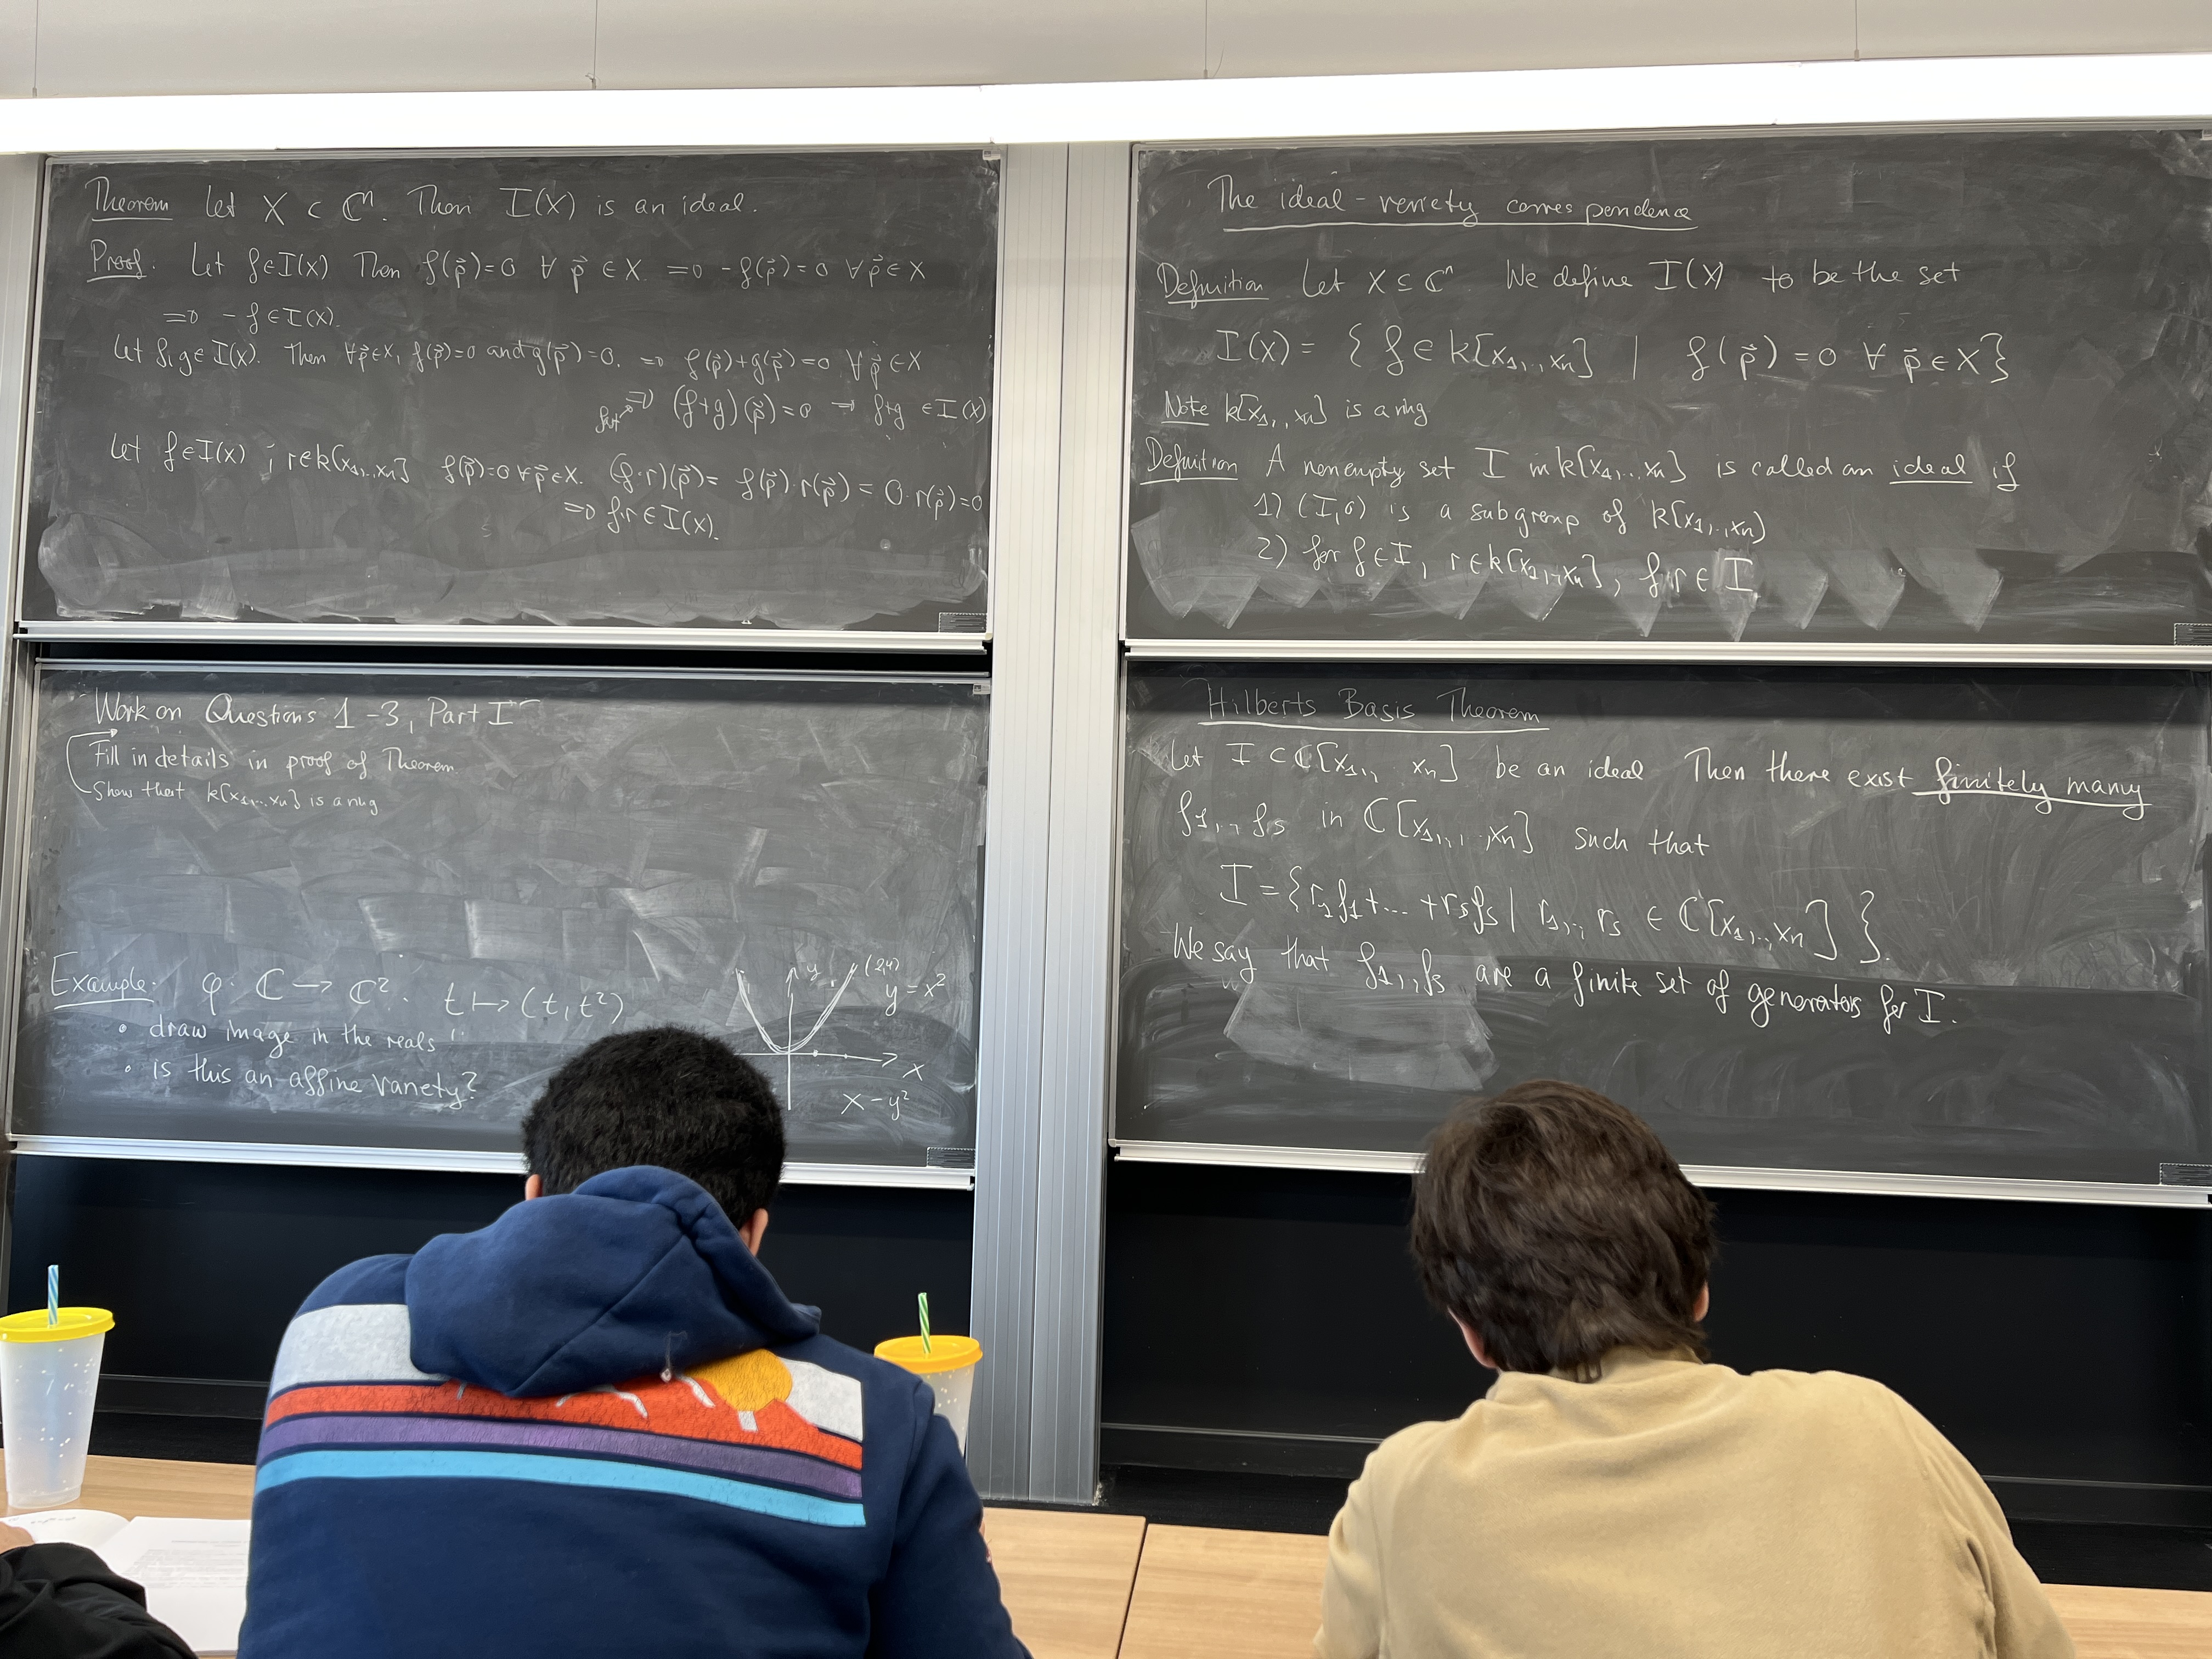 Theorem Let X ⊂ ℂⁿ. Then I(X) is an ideal.
Proof. Let f∈I(X) Then f(p⃗)=0 ∀ p⃗ ∈ X. ⇒ -f(p⃗)=0 ∀ p⃗∈X
⇒ -f∈I(X).
Let f,g∈I(X). Then ∀p⃗∈X, f(p⃗)=0 and g(p⃗)=0. ⇒ f(p⃗)+g(p⃗)=0 ∀p⃗∈X
⇒ (f+g)(p⃗)=0 → f+g ∈I(X)
Let f∈I(X), r∈k[x₁,..,xₙ] f(p⃗)=0 ∀p⃗∈X. (f·r)(p⃗)= f(p⃗)·r(p⃗) = 0·r(p⃗)=0
⇒ f·r∈I(X).
Work on Questions 1-3, Part I
Fill in details in proof of Theorem
Show that k[x₁,..,xₙ] is a ring
Example: φ: ℂ → ℂ². t ↦ (t,t²)
• draw image in the reals
• is this an affine variety?
y
(2,4)
y=x²
x
x-y²
The ideal-veriety correspondence
Definition Let X ⊆ ℂⁿ. We define I(X) to be the set
I(X) = { f ∈ k[x₁,..,xₙ] | f(p⃗) = 0 ∀ p⃗∈X}
Note k[x₁,.,xₙ] is a ring
Definition A nonempty set I in k[x₁,..,xₙ] is called an ideal if
1) (I,0) is a subgroup of k[x₁,..,xₙ)
2) for f∈I, r∈k[x₁,..,xₙ], f·r∈ I
Hilberts Basis Theorem
Let I ⊂ ℂ[x₁,, xₙ] be an ideal Then there exist finitely many
f₁,.,fₛ in ℂ[x₁,..,xₙ] such that
I={r₁f₁+... +rₛfₛ | r₁,..,rₛ ∈ ℂ[x₁,..,xₙ] }.
We say that f₁,.,fₛ are a finite set of generators for I.